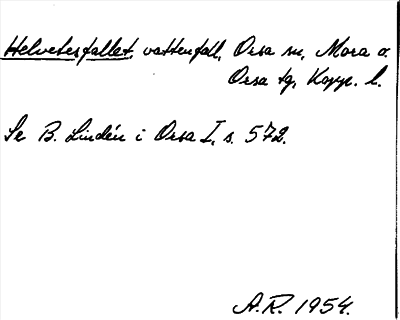 Helvetesfallet, vattenfall, Orsa sn, Mora o.
Orsa tg, Kopp. l.
Se B. Lindén i Orsa I, s. 572.
A.R. 1954.